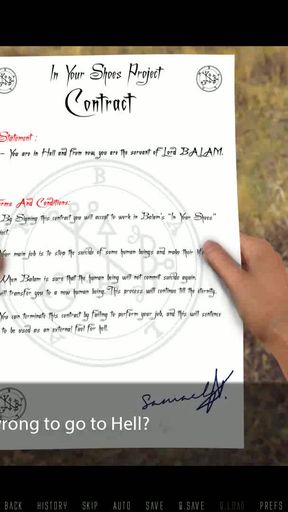 In Your Shoes Project
Contract
Statement :
- You are in Hell and from now you are the servant of Lord BALAM.
rms And Conditions:
By Signing this contract you will accept to work in Balam's "In Your Shoes"
ject.
Your main job is to stop the suicide of some human beings and make their
When Balam is sure that the human being will not commit suicide again,
will transfer you to a new human being. This process will continue till the eternity.
You can terminate this contract by failing to perform your job, and this will sentence
to be used as an external fuel for hell.
Samael
wrong to go to Hell?
BACK HISTORY SKIP AUTO SAVE Q.SAVE Q.LOAD PREFS